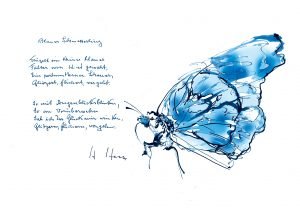 Blauer Schmetterling
Flügelt ein kleiner blauer
Falter vom Wind geweht,
Ein perlmutterner Schauer,
Glitzert, flimmert, vergeht.
So mit Augenblicksblinken,
So im Vorüberwehn
Sah ich das Glück mir winken,
Glitzern, flimmern, vergehn.
H Hesse